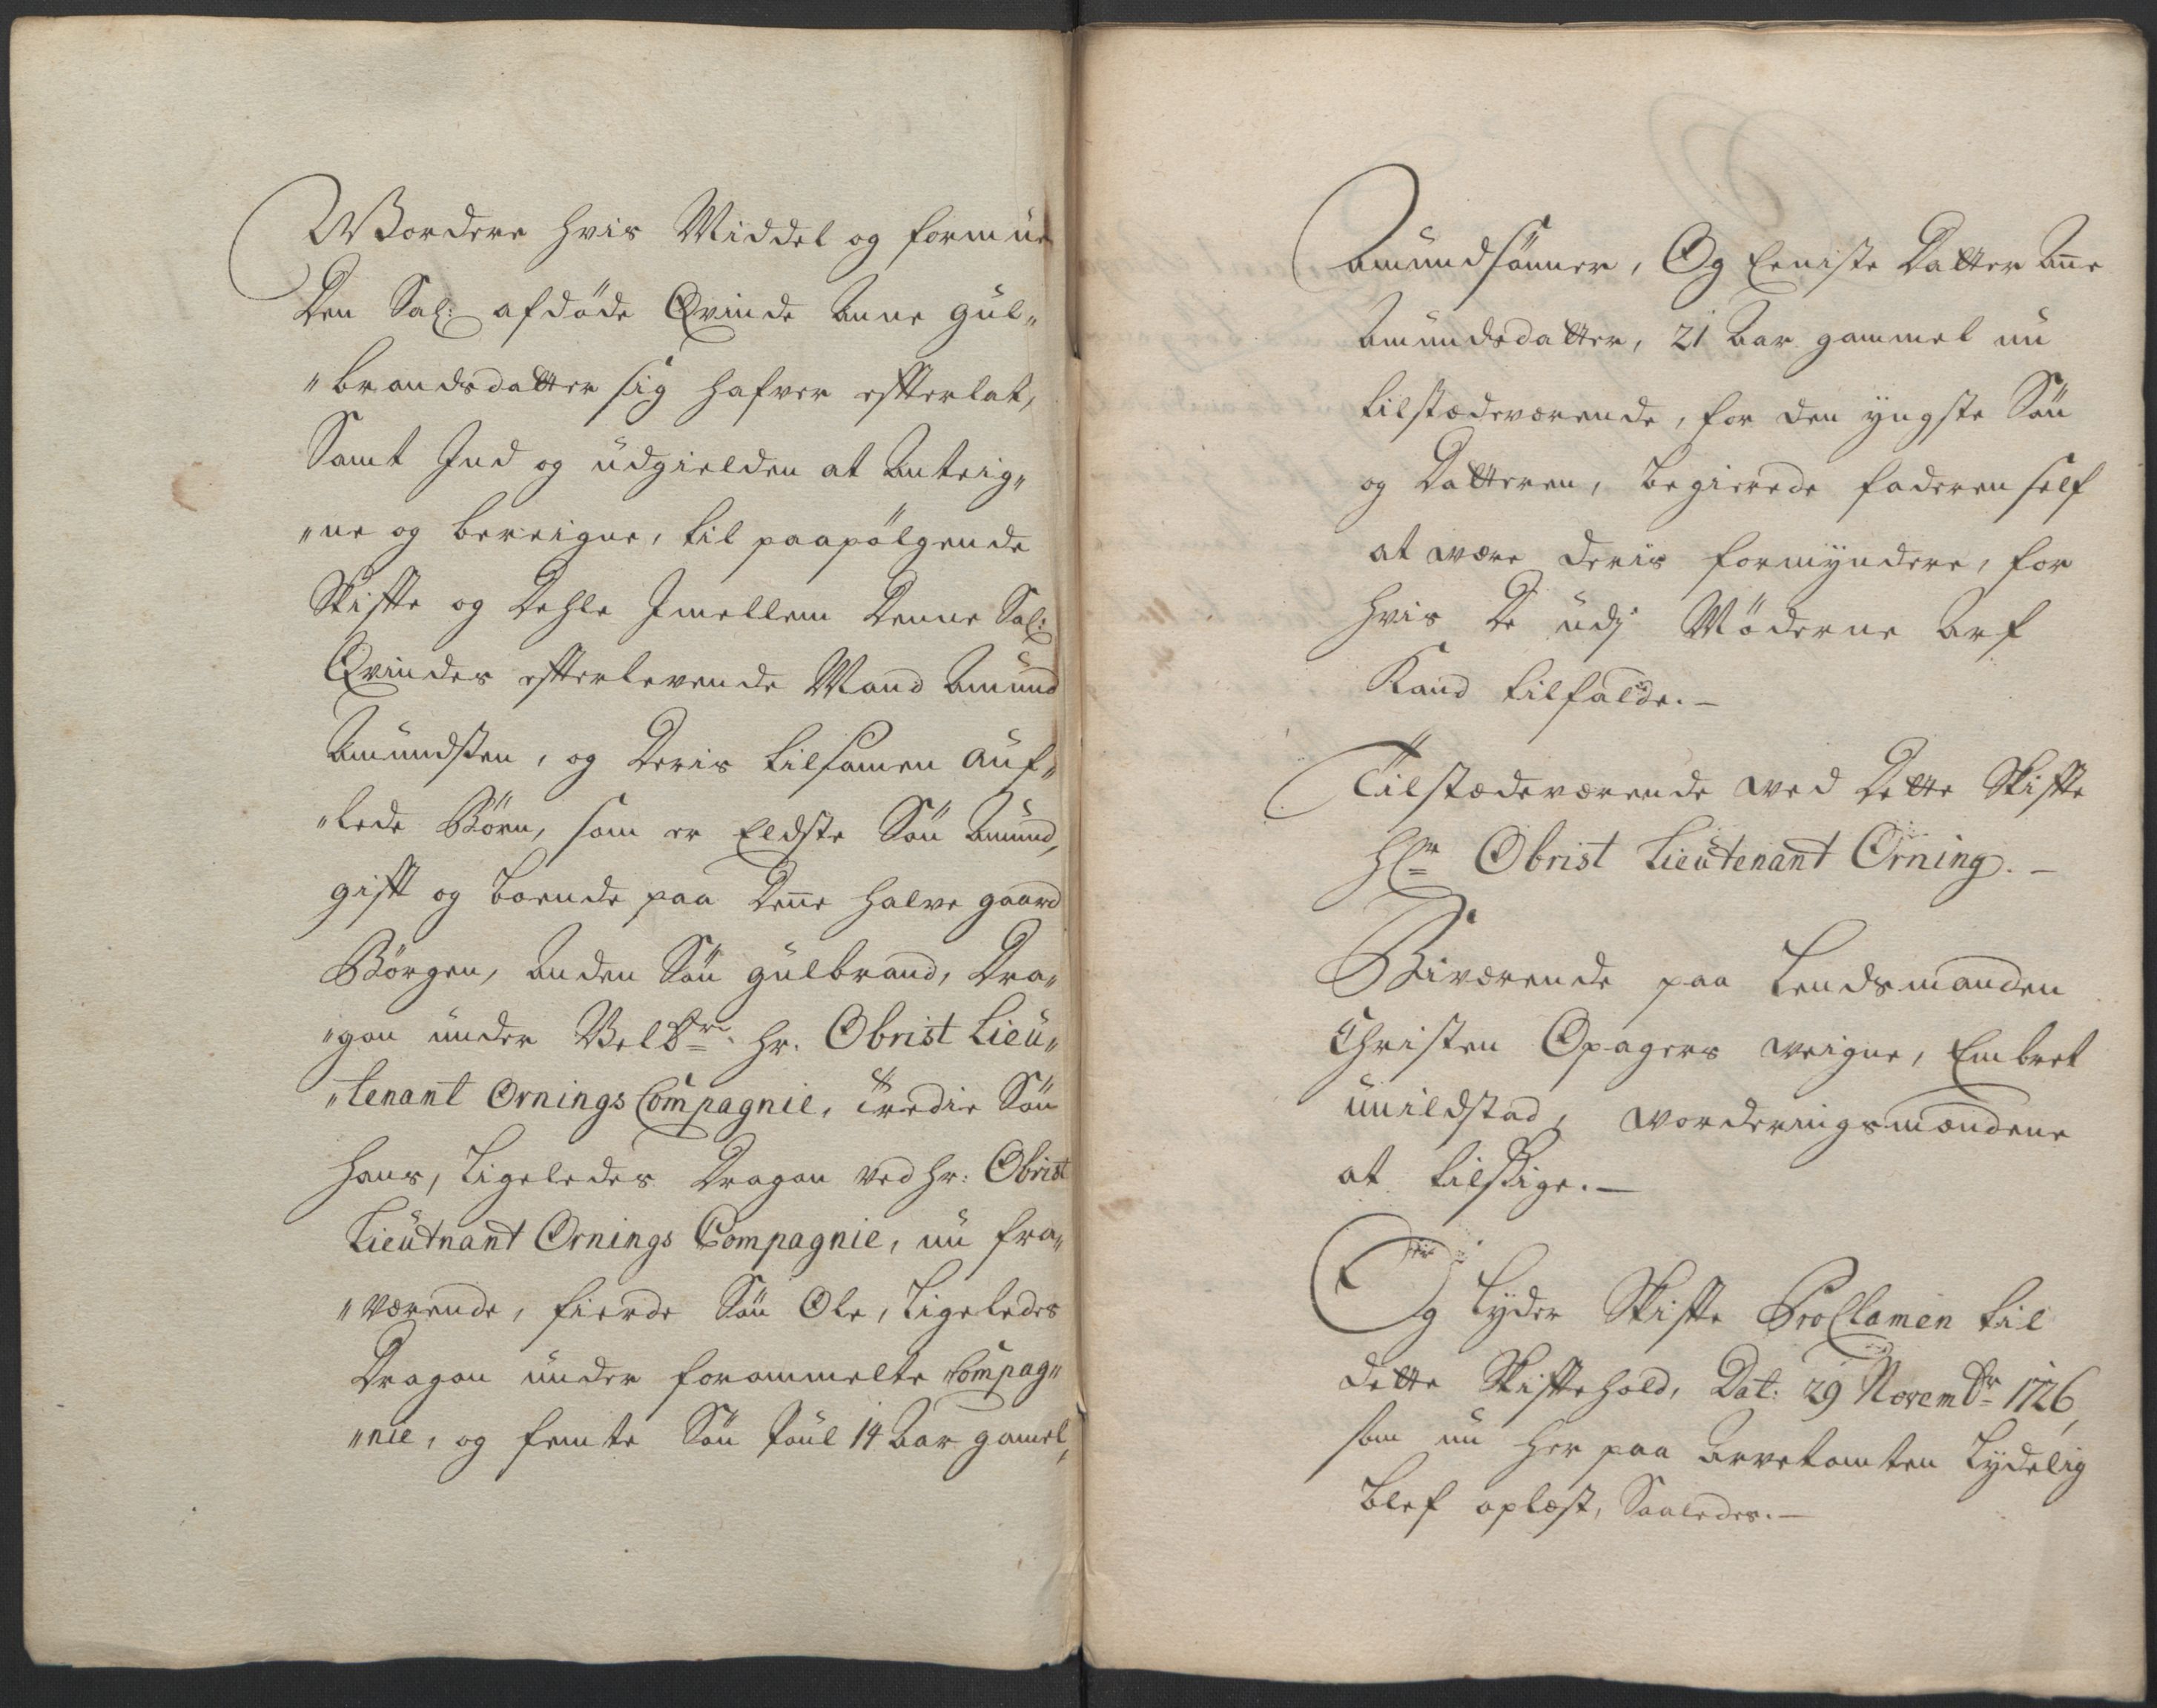 Wordere hvis Middel og formue
Den Sal: afdöde Qvinde Anne Gul„
„brandsdatter sig hafver efterlat,
Samt Ind og udgielden at Anteig„
„ne og bereigne, til paafölgende
Skifte og Dehle Imellem Denne Sal:
Qvindes efterlevende Mand Amund
Amundsen, og Deris tilsamen auf„
„lede Börn, som er Eldste Sön Amund,
gift og boende paa Denne halve gaard
Börgen, Anden Sön Gulbrand, Dra„
„gon under Velbr. Hr. Obrist Lieu„
„tenant Ornings Compagnie, Tredie Sön
Hans, Ligeledes Dragon ved Hr: Obrist
Lieutnant Ornings Compagnie, nu fra„
„værende, fierde Sön Ole, Ligeledes
Dragon under forommelte Compag„
„nie, og femte Sön Poul 14 Aar gamel,
Amundsönner, Og Eeniste Datter Anne
Amundsdatter, 21 Aar gammel nu
tilstædeværende, for den yngste Sön
og Datteren, begierede faderen self
at være deris formyndere, for
hvis De udj Möderne Arf
Kand tilfalde. —
Tilstædeværende ved Dette Skifte
Hr Obrist Lieutenant Orning. —
Biværende paa Lendsmanden
Christen Opagers veigne, Embret
unildstad, vorderingsmændene
at tilsige. —
Og Lyder Skifte Proclamen til
dette Skiftehold, Dat: 29 Novembr 1726,
som nu her paa Arvetomten Lydelig
blef oplæst, Saaledes. —